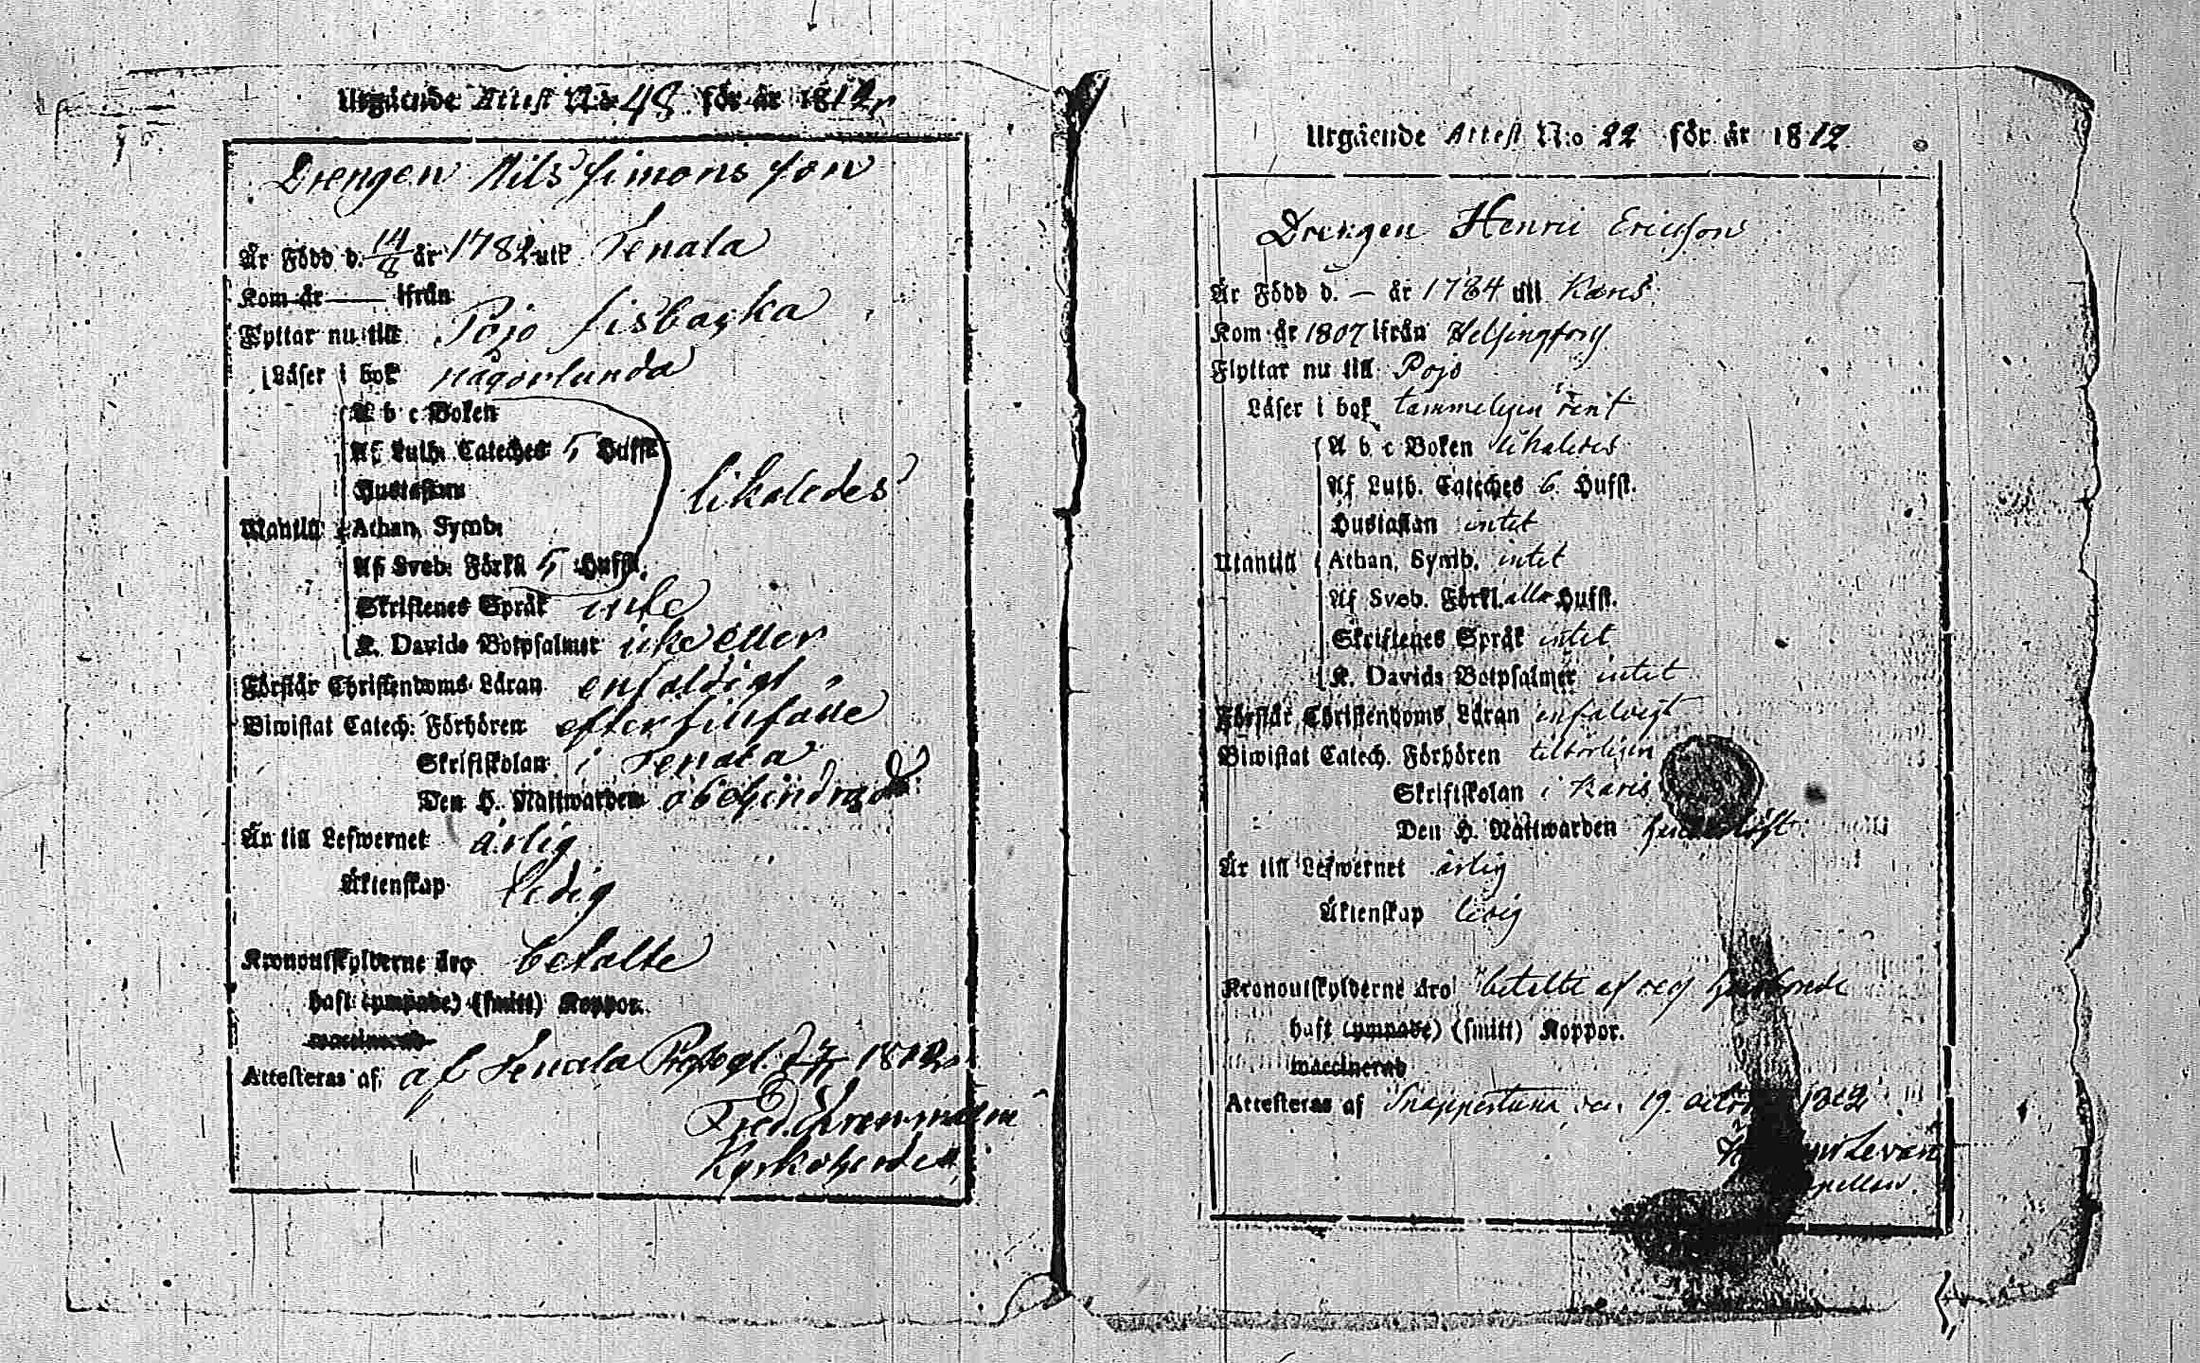 Utgående Attest N:o 48 för år 1812
Drengen Nils Simonsson
Är Född d. 14/8 år 1782 uti Tenala
Kom år — ifrån
Flyttar nu till Pojo Sisbacka
Läser i bok någorlunda
A b c Boken
Af Luth. Cateches 5 Hufst.
Hustaflan
likaledes
Utantill Athan. Symb.
Af Sveb. Förkl. 5 Hufst.
Skriftenes Språk inte
K. Davids Botpsalmer icke eller
Förstår Christendoms Läran enfaldigt
Biwistat Catech. Förhören efter tillfälle
Skriftskolan i Tenala
Den H. Nattwarden obehindrad
Än till Lefwernet ärlig
Äktenskap ledig
Kronoutskylderne äro betalte
haft (ympade) (smitt) Koppor.
waccinerad
Attesteras af, af Tenala 1812
Fred.
Kyrkoherde
Utgående Attest N:o 22 för år 1812
Drengen Henric Ericsson
Är Född d. — år 1784 uti Karis
Kom år 1807 ifrån Helsingfors
Flyttar nu till Pojo
Läser i bok tämmeligen rent
A b c Boken likaledes
Af Luth. Cateches 6 Hufst.
Hustaflan intet
Utantill Athan. Symb. intet
Af Sveb. Förkl. alla Hufst.
Skriftenes Språk intet
K. Davids Botpsalmer intet
Förstår Christendoms Läran enfaldigt
Biwistat Catech. Förhören tilbörligen
Skriftskolan i Karis
Den H. Nattwarden
Är till Lefwernet ärlig
Äktenskap ledig
Kronoutskylderne äro betalte af
haft (ympade) (smitt) Koppor.
waccinerad
Attesteras af Snappertuna den 19. 1812